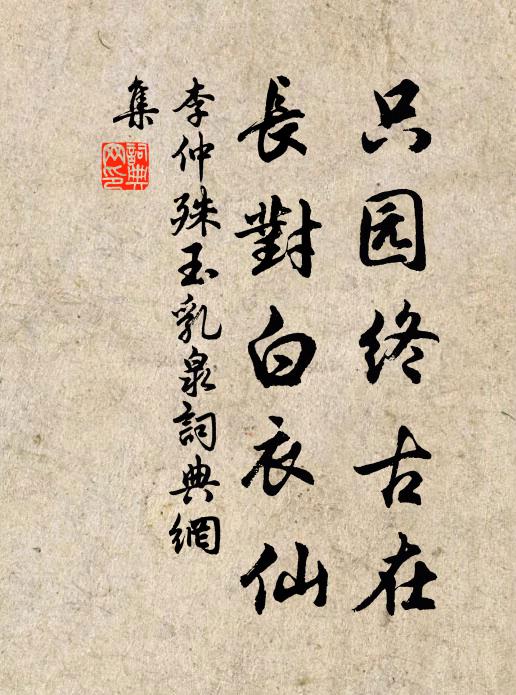 只园终古在
長對白衣仙
李仲殊玉乳泉詞典網
集
詞典網印